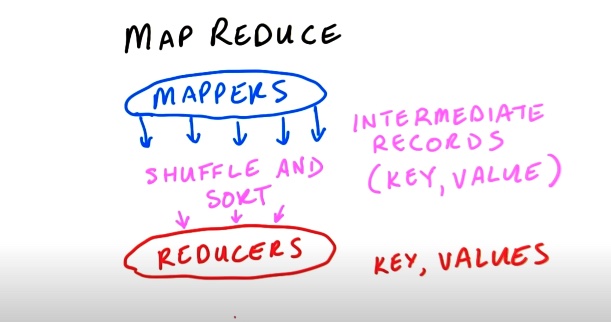 MAP REDUCE
MAPPERS
INTERMEDIATE
RECORDS
(KEY, VALUE)
SHUFFLE AND
SORT
REDUCERS
KEY, VALUES